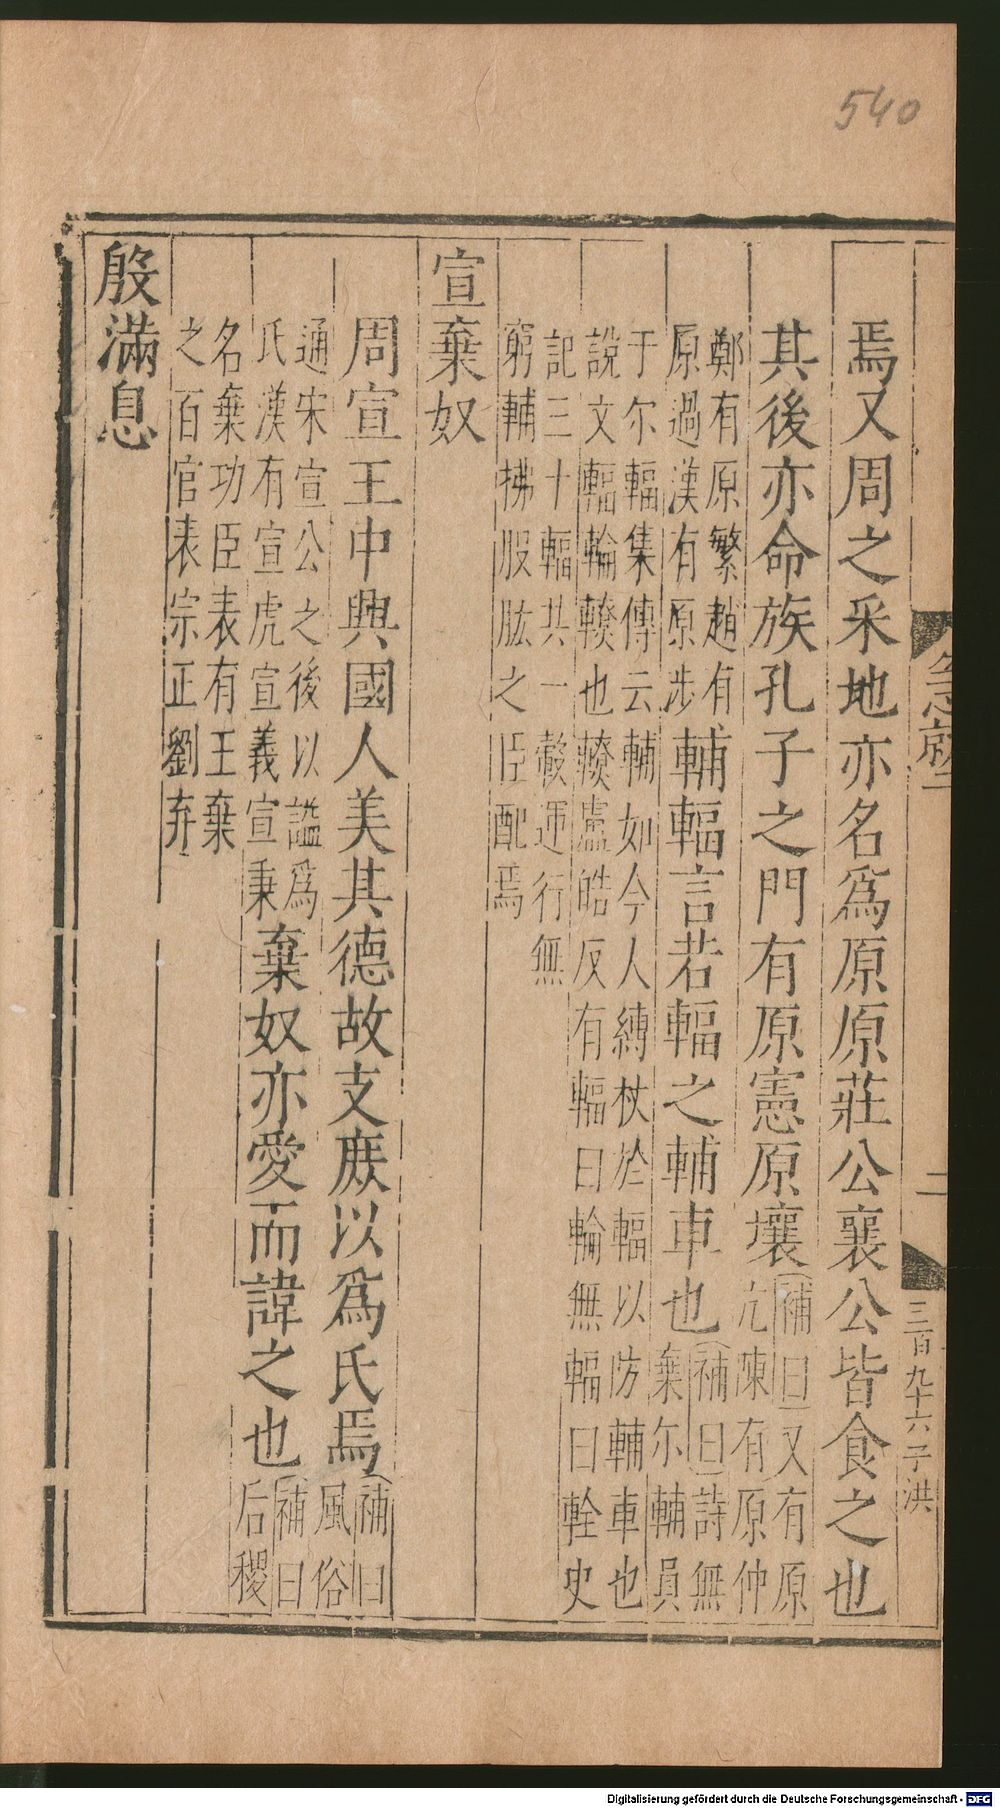 540
焉又周之采地亦名爲原原莊公襄公皆食之也
其後亦命族孔子之門有原憲原壤
補曰又有原
亢陳有原仲
鄭有原繁趙有
原過漢有原涉
輔輻言若輻之輔車也
補曰詩無
棄尔輔員
于尔輻集傳云輔如今人縛杖於輻以防輔車也
說文輻輪轑也轑盧皓反有輻曰輪無輻曰輇史
記三十輻共一轂運行無
窮輔拂股肱之臣配焉
宣棄奴
周宣王中興國人美其德故支庻以爲氏焉
補曰
風俗
通宋宣公之後以謚爲
氏漢有宣虎宣義宣秉
棄奴亦愛而諱之也
補曰
后稷
名棄功臣表有王棄
之百官表宗正劉弃
殷滿息
二
三百九十六子洪
Digitalisierung gefördert durch die Deutsche Forschungsgemeinschaft - DFG